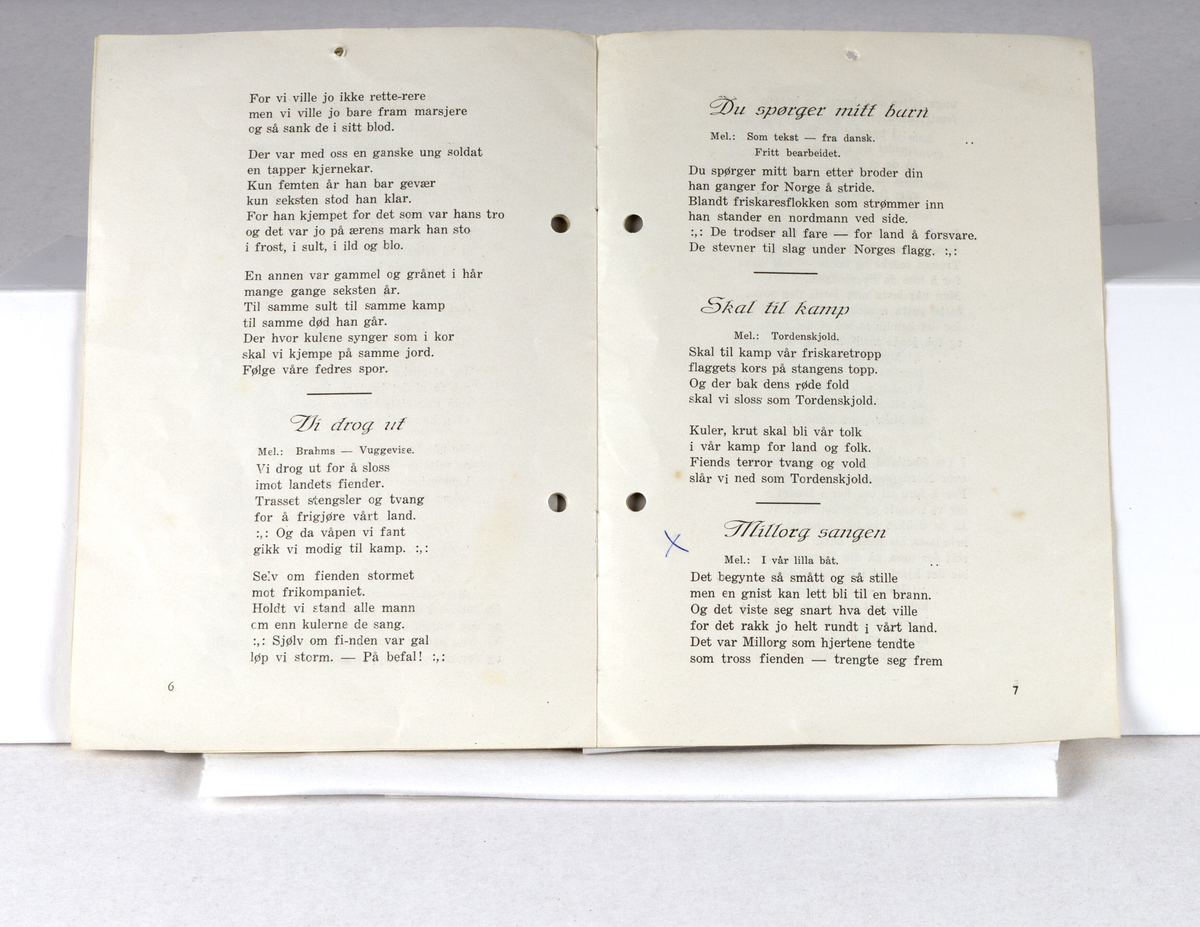 For vi ville jo ikke rette-rere
men vi ville jo bare fram marsjere
og så sank de i sitt blod.
Der var med oss en ganske ung soldat
en tapper kjernekar.
Kun femten år han bar gevær
kun seksten stod han klar.
For han kjempet for det som var hans tro
og det var jo på ærens mark han sto
i frost, i sult, i ild og blo.
En annen var gammel og grånet i hår
mange gange seksten år.
Til samme sult til samme kamp
til samme død han går.
Der hvor kulene synger som i kor
skal vi kjempe på samme jord.
Følge våre fedres spor.
Vi drog ut
Mel.: Brahms — Vuggevise.
Vi drog ut for å sloss
imot landets fiender.
Trasset stengsler og tvang
for å frigjøre vårt land.
:,: Og da våpen vi fant
gikk vi modig til kamp. :,:
Selv om fienden stormet
mot frikompaniet.
Holdt vi stand alle mann
om enn kulerne de sang.
:,: Sjølv om fi-nden var gal
løp vi storm. — På befal! :,:
6
Du spørger mitt barn
Mel.: Som tekst — fra dansk.
Fritt bearbeidet.
Du spørger mitt barn etter broder din
han ganger for Norge å stride.
Blandt friskaresflokken som strømmer inn
han stander en nordmann ved side.
:,: De trodser all fare — for land å forsvare.
De stevner til slag under Norges flagg. :,:
Skal til kamp
Mel.: Tordenskjold.
Skal til kamp vår friskaretropp
flaggets kors på stangens topp.
Og der bak dens røde fold
skal vi sloss som Tordenskjold.
Kuler, krut skal bli vår tolk
i vår kamp for land og folk.
Fiends terror tvang og vold
slår vi ned som Tordenskjold.
X
Millorg sangen
Mel.: I vår lilla båt.
Det begynte så smått og så stille
men en gnist kan lett bli til en brann.
Og det viste seg snart hva det ville
for det rakk jo helt rundt i vårt land.
Det var Millorg som hjertene tendte
som tross fienden — trengte seg frem
7